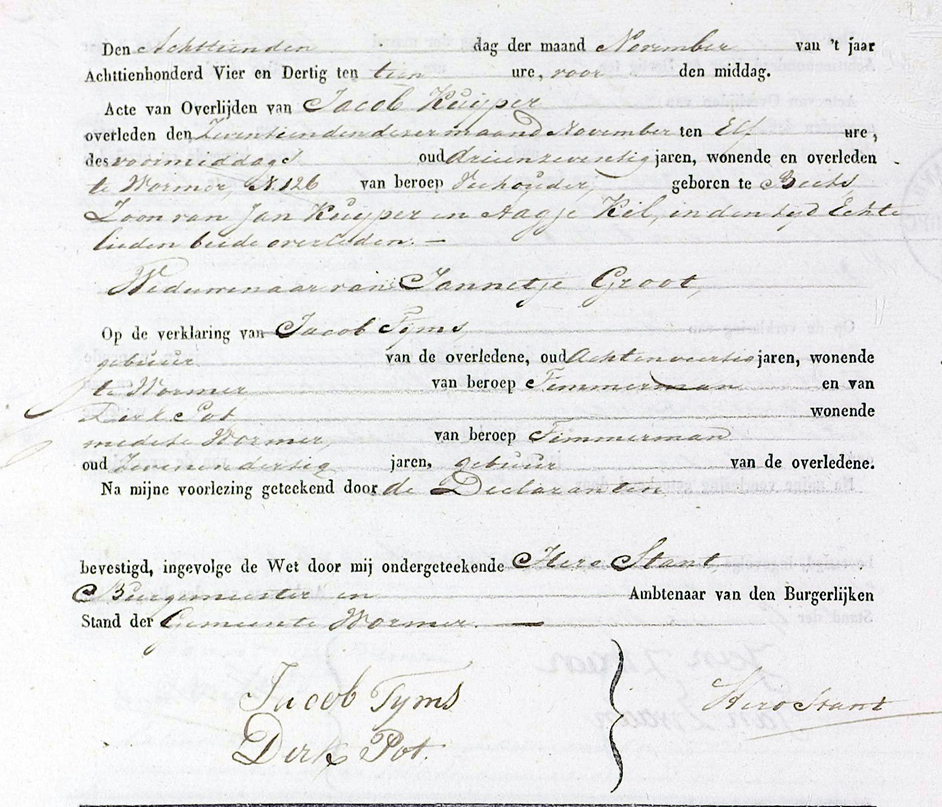 Den Achttienden dag der maand November van 't jaar
Achttienhonderd Vier en Dertig ten tien ure, voor den middag.
Acte van Overlijden van Jacob Kuijper
overleden den Zeventienden dezer maand November ten Elf ure,
des voormiddags oud drieenzeventig jaren, wonende en overleden
te Wormer, N. 126 van beroep Veehouder, geboren te Beets,
Zoon van Jan Kuijper en Aagje Kil, in den tyd Echte
lieden beide overleden. —
Weduwenaar van Jannetje Groot,
Op de verklaring van Jacob Tyms,
gebuur van de overledene, oud Achtenveertig jaren, wonende
te Wormer van beroep Timmerman en van
Dirk Pot wonende
mede te Wormer, van beroep Timmerman
oud Zevenendertig jaren, gebuur van de overledene.
Na mijne voorlezing geteekend door de Declaranten
bevestigd, ingevolge de Wet door mij ondergeteekende Hero Stant,
Burgemeester en Ambtenaar van den Burgerlijken
Stand der Gemeente Wormer. —
Jacob Tyms
Hero Stant
Dirk Pot.